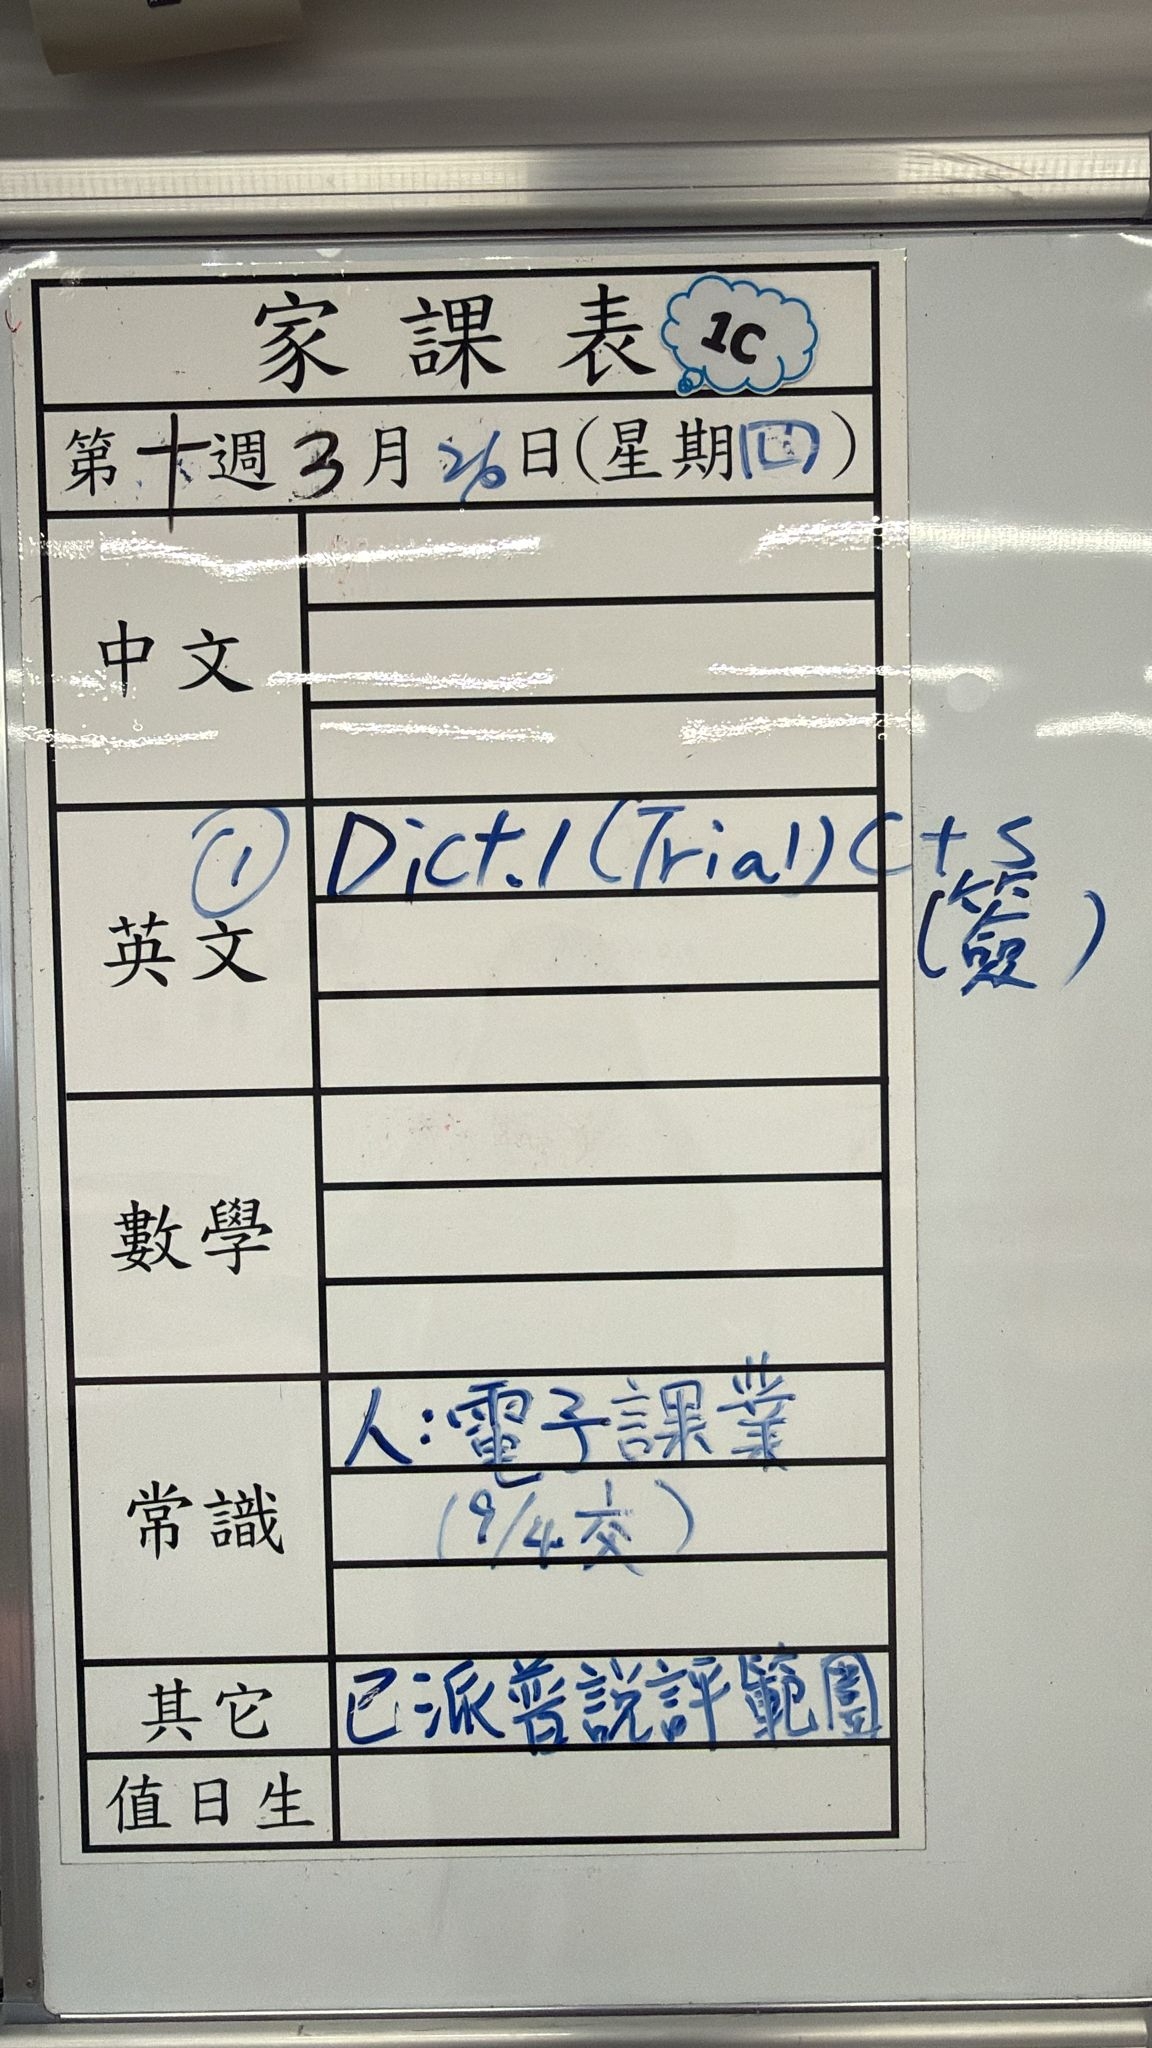 家課表 1C
第十週3月26日(星期四)
中文
① Dict.1(Trial) C+S
(簽)
英文
數學
人:電子課業
(9/4交)
常識
其它 已派普說評範圍
值日生